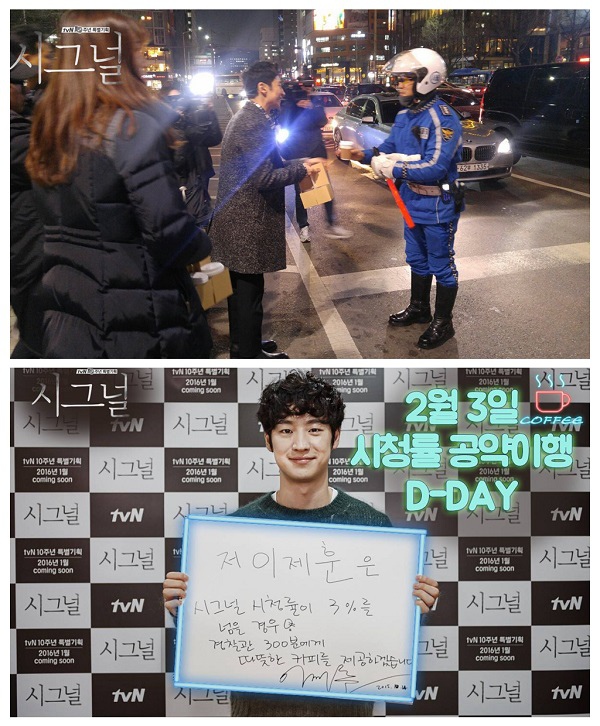 tvN 10주년 특별기획
시그널
tvN 10주년 특별기획
시그널
2월 3일
COFFEE
시청률 공약이행
D-DAY
tvN 10주년 특별기획
2016년 1월
coming soon
시그널
tvN
저 이제훈은
시그널 시청률이 3%를
넘을 경우
경찰관 300분에게
따뜻한 커피를 제공하겠습니다